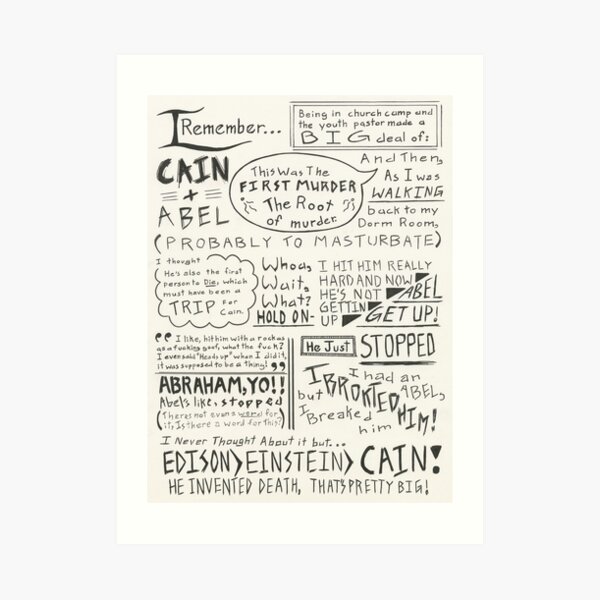 I Remember...
Being in church camp and
the youth pastor made a
BIG deal of:
CAIN
+
ABEL
This Was The
FIRST MURDER
The Root
of murder.
And Then,
As I was
WALKING
back to my
Dorm Room,
(PROBABLY TO MASTURBATE)
I thought
He's also the first
person to Die, which
must have been a
TRIP For
Cain.
Whoa,
Wait,
What?
HOLD ON-
I HIT HIM REALLY
HARD AND NOW
HE'S NOT
GETTIN
UP
ABEL
GET UP!
"I like, hit him with a rock as
as a fucking goof, what the fuck?
I even said "Heads up" when I did it,
it was supposed to be a thing!"
He Just STOPPED
ABRAHAM, YO!!
Abel's like, stopped
(Theres not even a word for
it, Is there a word for This?)
I had an
ABEL,
but
I BROKTED
HIM!
I Breaked
him
I Never Thought About it but...
EDISON>EINSTEIN> CAIN!
HE INVENTED DEATH, THATS PRETTY BIG!